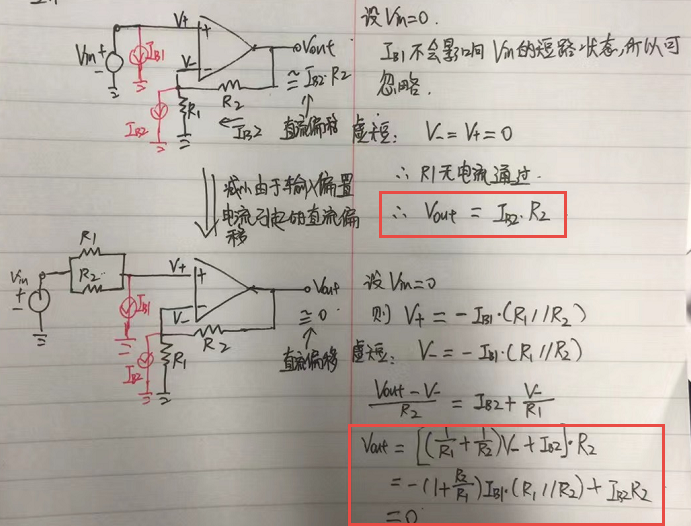 设 Vin=0.
IB1 不会影响 Vin的短路状态,所以可
忽略.
虚短: V- = V+ = 0
∴ R1无电流通过.
∴ Vout = IB2·R2
Vin
+
-
IB1
V+
+
V-
-
Vout
≅ IB2·R2
↑
直流偏移
R2
R1
← IB2
IB2
减小由于输入偏置
电流引起的直流偏
移
R1
R2
Vin
+
-
IB1
V+
+
V-
-
Vout
≅ 0
↑
直流偏移
R2
R1
IB2
设 Vin=0
则 V+ = -IB1·(R1//R2)
虚短: V- = -IB1·(R1//R2)
(Vout - V-)/R2 = IB2 + V-/R1
Vout = [(1/R1 + 1/R2)V- + IB2]·R2
= -(1+R2/R1)IB1·(R1//R2) + IB2R2
=0